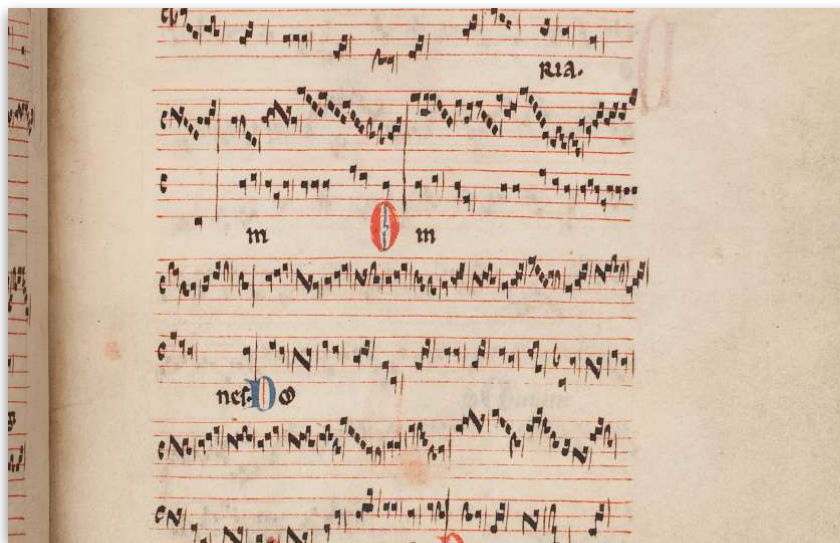 RIA.
m O m
nes. D o